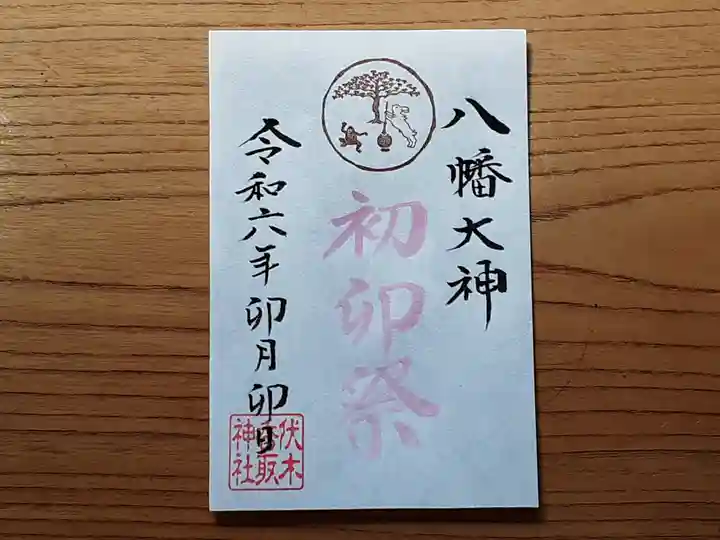 八幡大神
初卯祭
令和六年卯月卯日
伏木
香取
神社